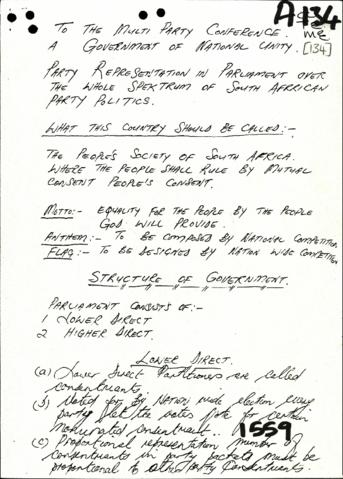 A134
ME
[134]
TO THE MULTI PARTY CONFERENCE.
A GOVERNMENT OF NATIONAL UNITY.
PARTY REPRESENTATION IN PARLIAMENT OVER
THE WHOLE SPEKTRUM OF SOUTH AFRRICAN
PARTY POLITICS.
WHAT THIS COUNTRY SHOULD BE CALLED:-
THE PEOPLE'S SOCIETY OF SOUTH AFRICA.
WHERE THE PEOPLE SHALL RULE BY MUTUAL
CONSENT PEOPLE'S CONSENT.
MOTTO:- EQUALITY FOR THE PEOPLE BY THE PEOPLE
GOD WILL PROVIDE.
ANTHEM:- TO BE COMPOSED BY NATIONAL COMPETITION
FLAG:- TO BE DESIGNED BY NATION WIDE COMPETITION
STRUCTURE OF GOVERNMENT.
PARLIAMENT CONSISTS OF:-
1 LOWER DIRECT
2 HIGHER DIRECT.
LOWER DIRECT.
(a) Lower Direct are called
(b) Voted for by Nation wide election every
party the votes vote for certain
nominated
1559
(c) Proportional representation number of
in party must be
proportional to other party